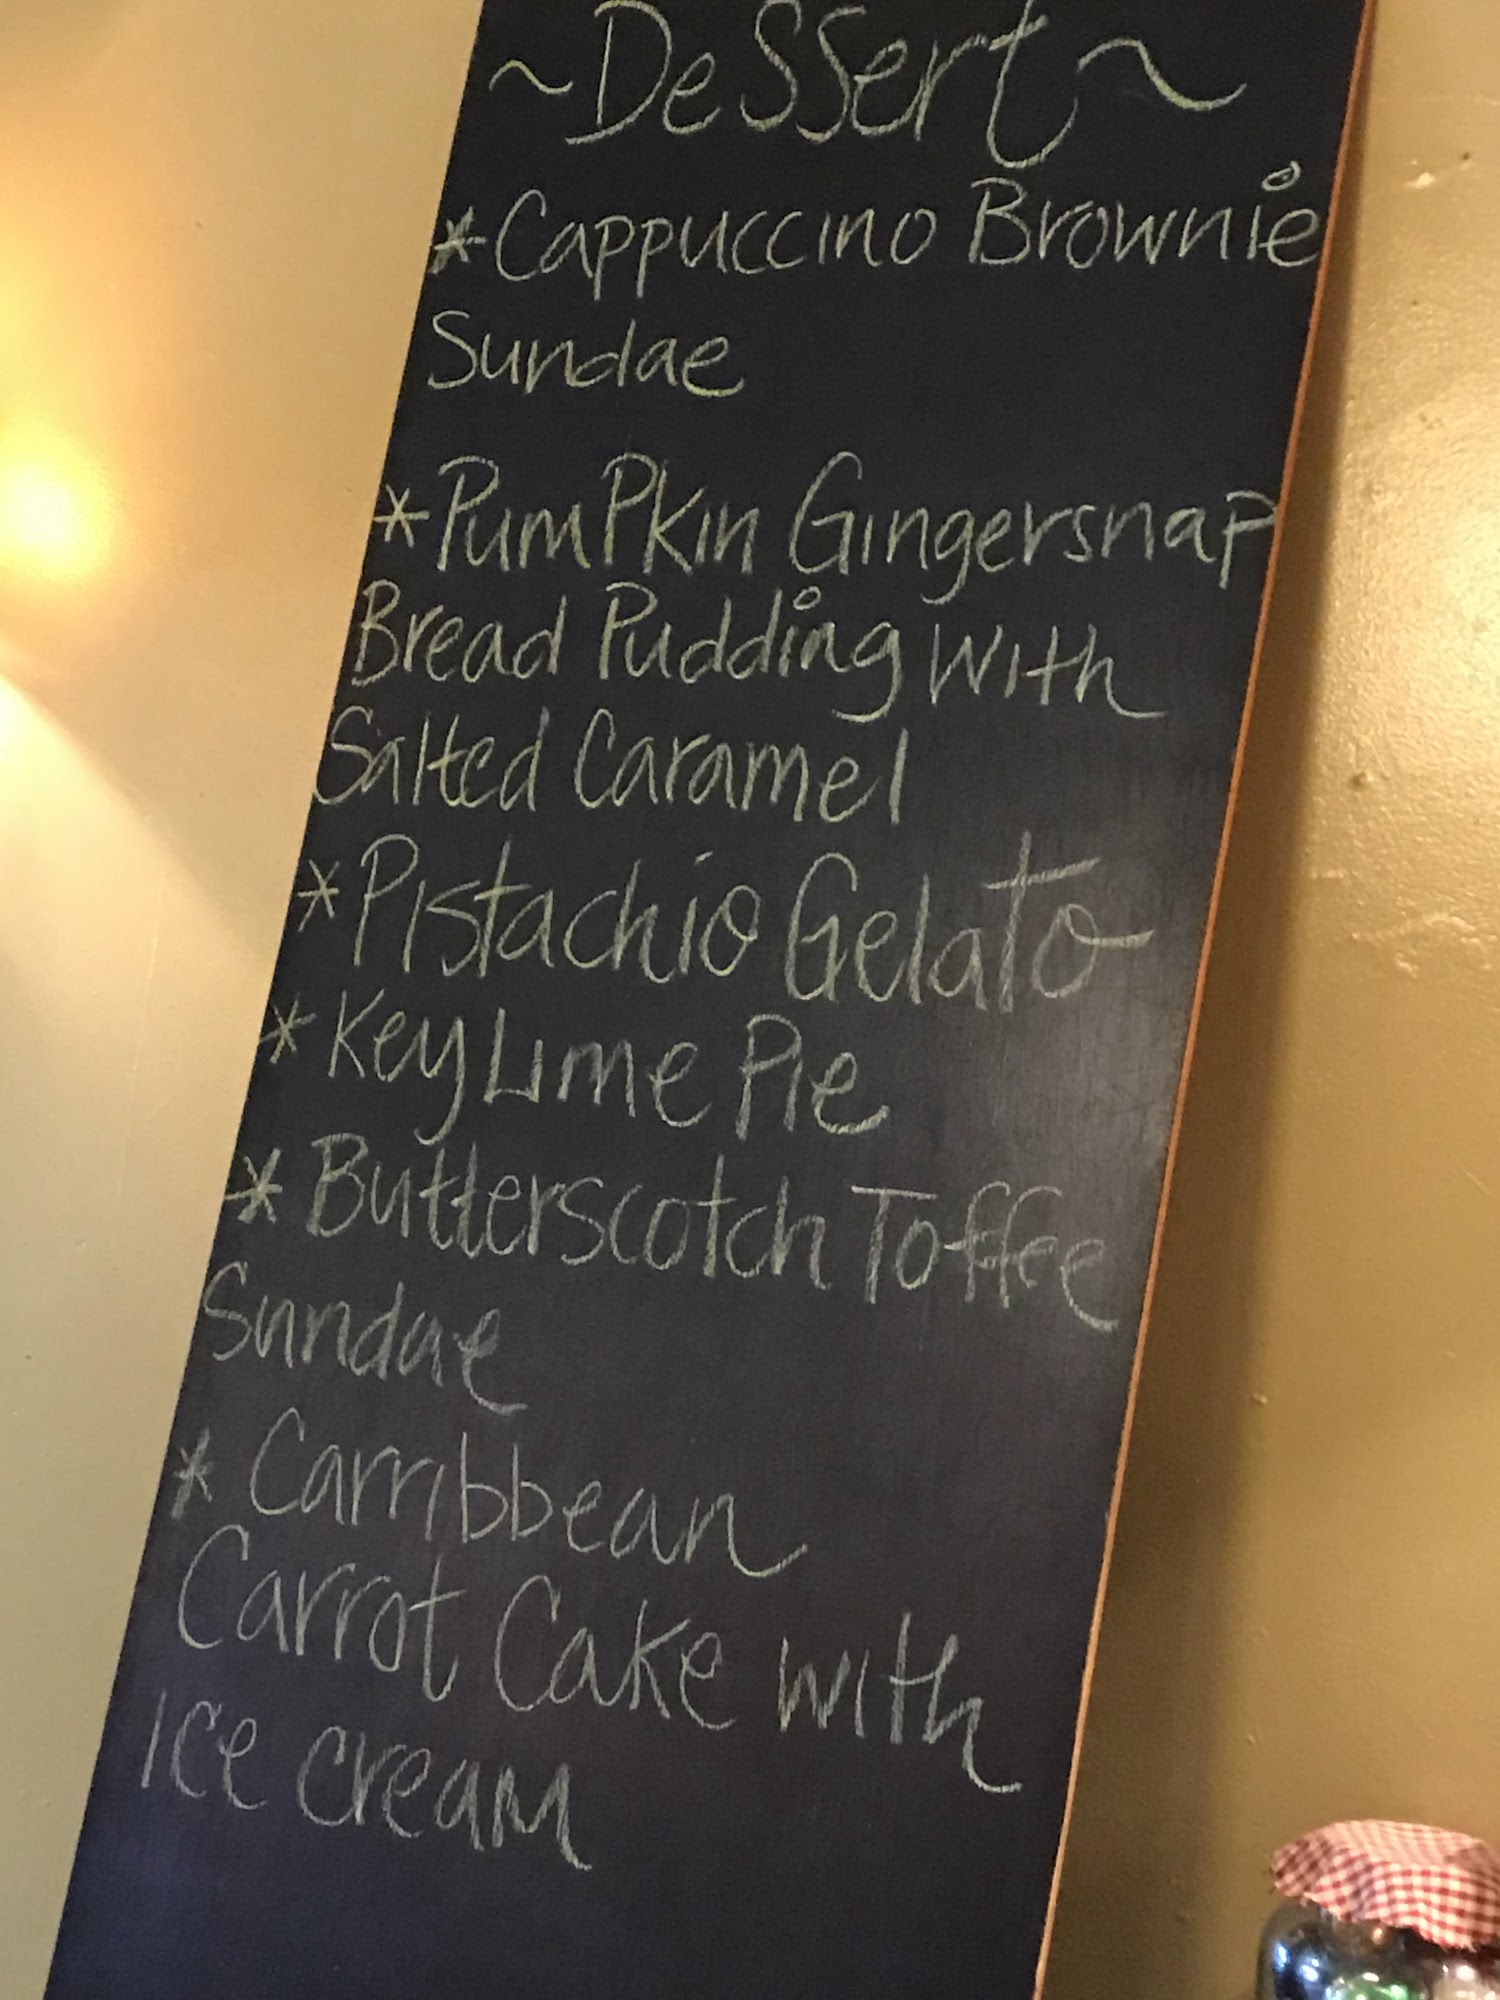 ~Dessert~
*Cappuccino Brownie
Sundae
*Pumpkin Gingersnap
Bread Pudding with
Salted Caramel
*Pistachio Gelato
*Key Lime Pie
*Butterscotch Toffee
Sundae
* Carribbean
Carrot Cake with
ice cream